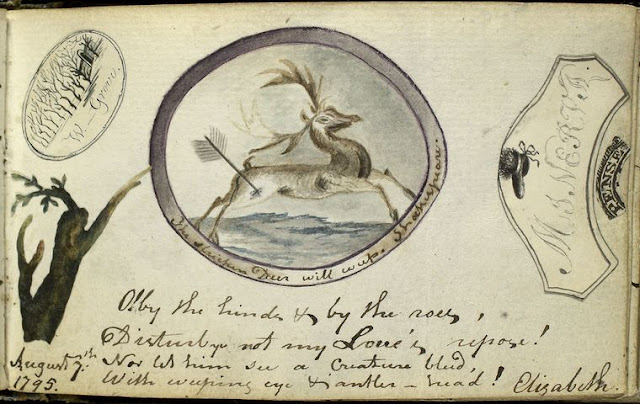 W. Greene.
The stricken Deer will weep. Shakespear.
Mrs
PENSE
O! by the hinds & by the roes,
Disturb ye not my Love's repose!
Nor let him see a Creature bleed,
With weeping eye & antler-head!
August 7th
1795.
Elizabeth.